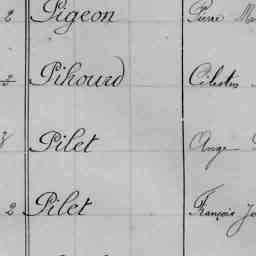 2 Pigeon Pierre
2 Pihourd Célestin
Pilet Ange
2 Pilet François